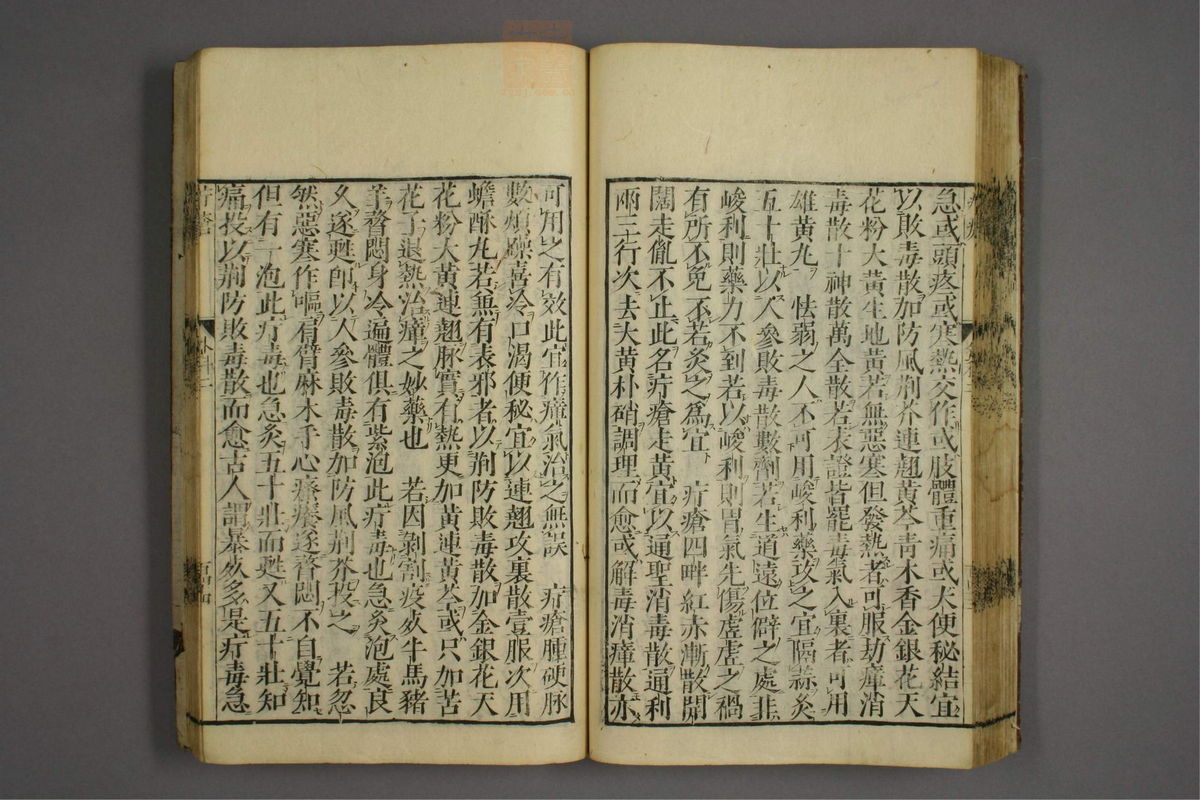 急或頭疼或寒熱交作或肢體重痛或大便秘結宜
以敗毒散加防風荆芥連翹黃芩青木香金銀花天
花粉大黃生地黃若無惡寒但發熱者可服劫瘴消
毒散十神散萬全散若表證皆罷毒氣入裏者可用
雄黃丸　怯弱之人不可用峻利藥攻之宜隔蒜灸
五十壯以人參敗毒散數劑若生道遠位僻之處非
峻利則藥力不到若以峻利則胃氣先傷虛虛之禍
有所不免不若灸之爲宜　疔瘡四畔紅赤漸散開
闊走亂不止此名疔瘡走黃宜以通聖消毒散通利
兩三行次去大黃朴硝調理而愈或解毒消瘴散亦
可用之有效此宜作瘴氣治之無誤　疔瘡腫硬脉
數煩躁喜冷口渴便秘宜以連翹攻裏散壹服次用
蟾酥丸若無有表邪者以荆防敗毒散加金銀花天
花粉大黃連翹脉實有熱更加黃連黃芩或只加苦
花子退熱治瘴之妙藥也　若因剝割疫死牛馬豬
羊瞀悶身冷遍體俱有紫泡此疔毒也急灸泡處良
久遂甦即以人參敗毒散加防風荆芥投之　若忽
然惡寒作嘔肩臂麻木手心瘙癢遂瞀悶不自覺知
但有一泡此疔毒也急灸五十壯而甦又五十壯知
痛投以荆防敗毒散而愈古人謂暴死多是疔毒急